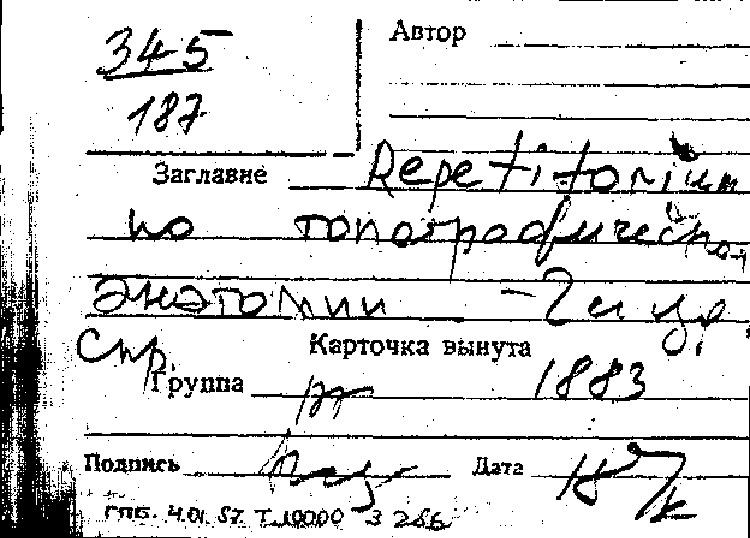 345
187
Автор
Заглавие Repetitorium
по топографической
анатомии - 2 изд.
Спр. Карточка вынута
Группа 1883
Подпись Дата 18
ГПБ. 4.01 87. Т. 10000 З 286